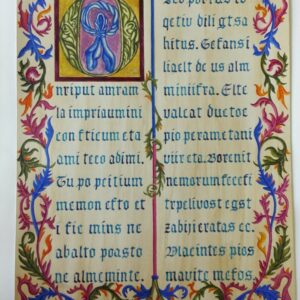 nriput amram
la impriaumini
con f ticum et a
ami teco adimi.
Tu po peitium
memon efto et
i fic mins ne
abalto poasto
ne almeminte.
qetiv dili gtsa
hitus. Gefansi
liaelt de us alm
miniifra. Elte
valcat duc toc
pio perame tani
viir eta. Borenit
nemorum feccfi
trpelivost egst
zabijicratas cc.
Macintes pios
mavite mefos.